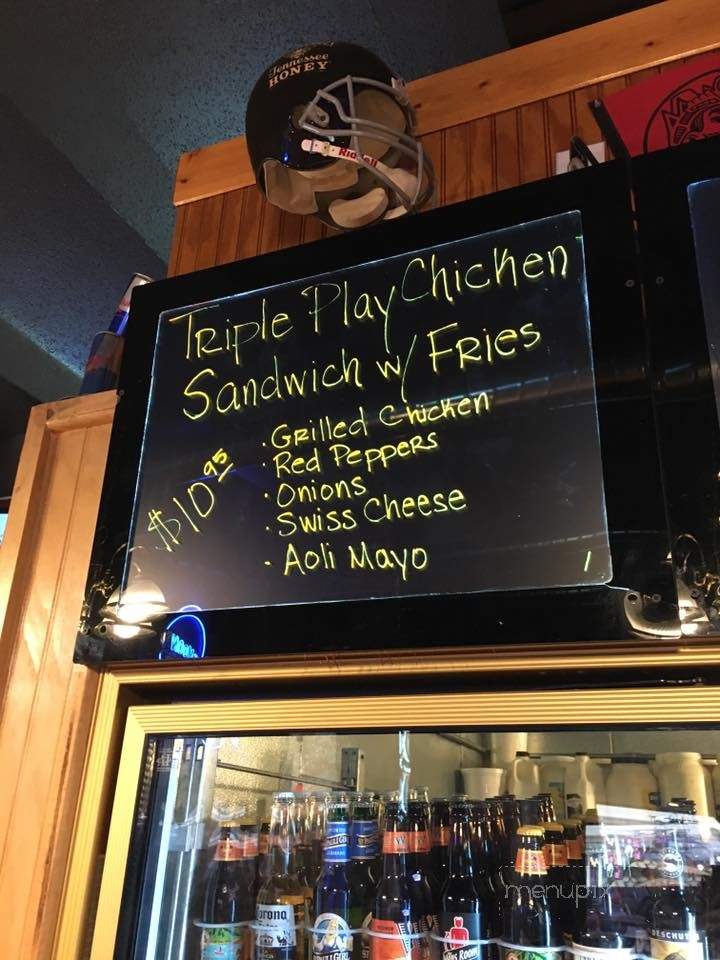 Tennessee
HONEY
Riddell
Triple Play Chicken
Sandwich w/ Fries
· Grilled Chicken
· Red Peppers
· Onions
· Swiss Cheese
· Aoli Mayo
$10.95
Corona
menupix
DESCHUT